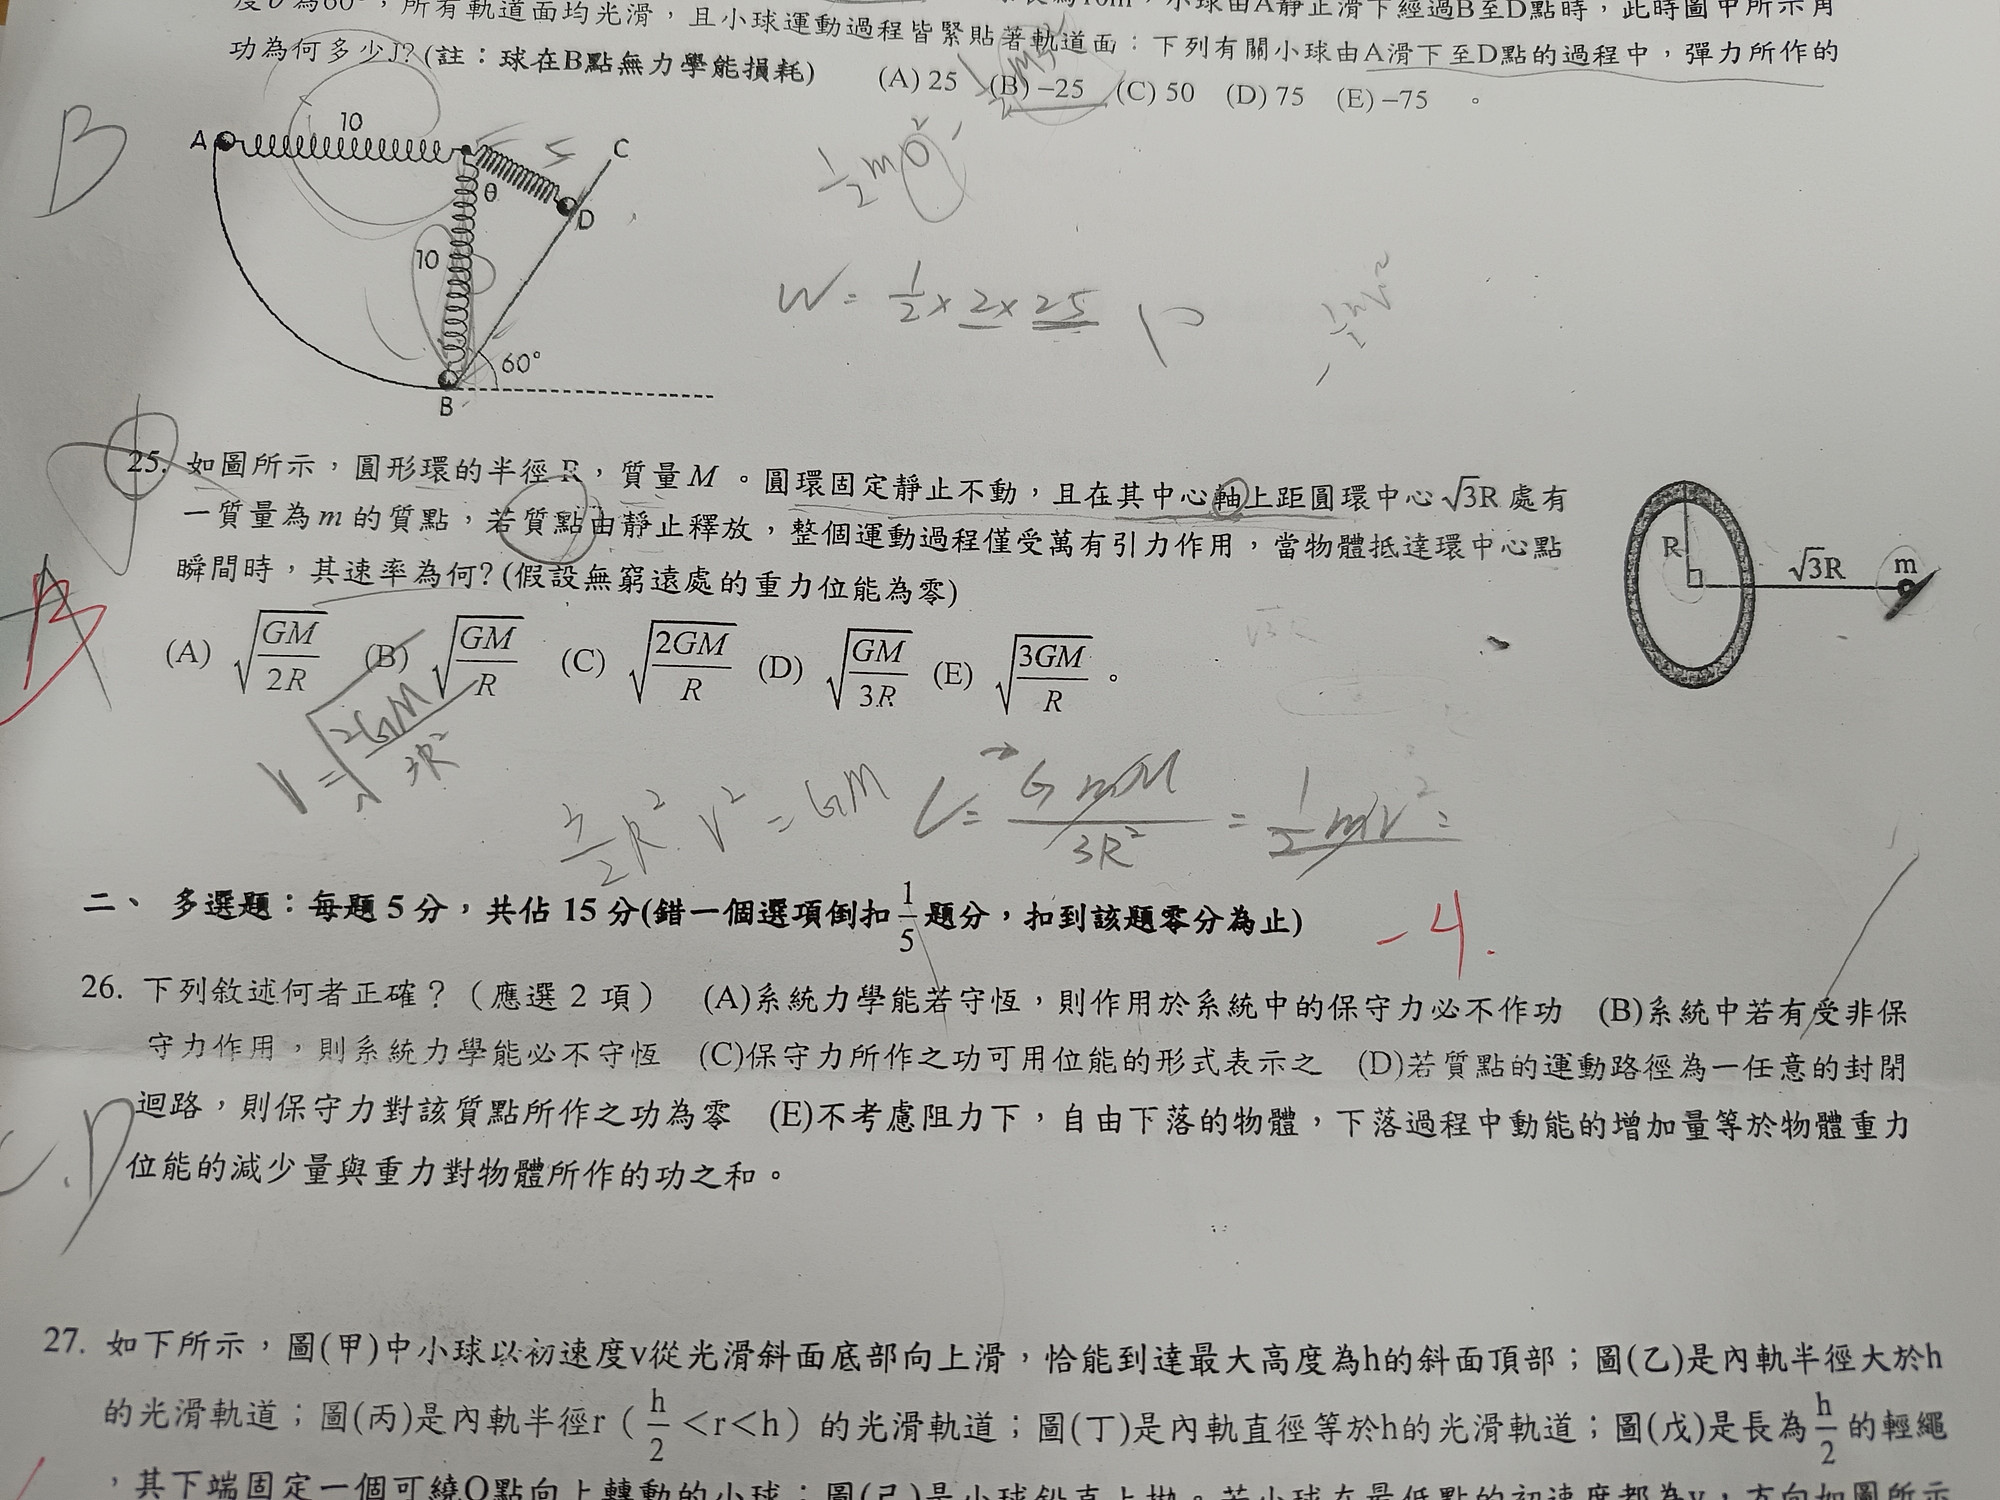 度θ為60°，所有軌道面均光滑，且小球運動過程皆緊貼著軌道面：下列有關小球由A滑下至D點的過程中，彈力所作的
長為10m，小球由A靜止滑下經過B至D點時，此時圖中所示角
功為何多少J？(註：球在B點無力學能損耗) (A) 25 (B) –25 (C) 50 (D) 75 (E) –75 。
B
A 10 C
θ D
10
60°
B
½m0²
W = ½ × 2 × 25
½mv²
25. 如圖所示，圓形環的半徑R，質量M。圓環固定靜止不動，且在其中心軸上距圓環中心√3R處有
一質量為m的質點，若質點由靜止釋放，整個運動過程僅受萬有引力作用，當物體抵達環中心點
瞬間時，其速率為何？(假設無窮遠處的重力位能為零)
(A) √(GM/2R) (B) √(GM/R) (C) √(2GM/R) (D) √(GM/3R) (E) √(3GM/R) 。
R √3R m
B
V = √(2GM/3R²)
3/2 R² V² = GM
GmM/3R² = ½mv² =
二、 多選題：每題5分，共佔15分(錯一個選項倒扣1/5題分，扣到該題零分為止)
-4.
26. 下列敘述何者正確？（應選2項） (A)系統力學能若守恆，則作用於系統中的保守力必不作功 (B)系統中若有受非保
守力作用，則系統力學能必不守恆 (C)保守力所作之功可用位能的形式表示之 (D)若質點的運動路徑為一任意的封閉
迴路，則保守力對該質點所作之功為零 (E)不考慮阻力下，自由下落的物體，下落過程中動能的增加量等於物體重力
位能的減少量與重力對物體所作的功之和。
C.D
27. 如下所示，圖(甲)中小球以初速度v從光滑斜面底部向上滑，恰能到達最大高度為h的斜面頂部；圖(乙)是內軌半徑大於h
的光滑軌道；圖(丙)是內軌半徑r（h/2<r<h）的光滑軌道；圖(丁)是內軌直徑等於h的光滑軌道；圖(戊)是長為h/2的輕繩
，其下端固定一個可繞O點向上轉動的小球；圖(己)是小球鉛直上拋。若小球在最低點的初速度都為v，方向如圖所示